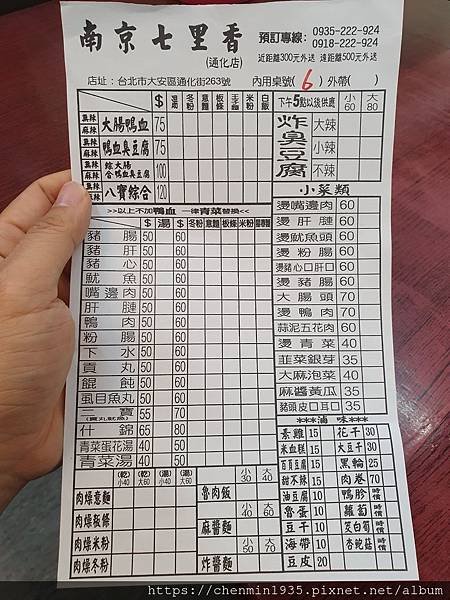 南京七里香
(通化店)
預訂專線: 0935-222-924
0918-222-924
近距離300元外送 遠距離500元外送
店址:台北市大安區通化街263號
內用桌號( 6 )外帶( )
$ 湯 冬粉 意麵 板條 米粉 白飯
麻辣 大腸鴨血 75
麻辣 鴨血臭豆腐 75
麻辣 綜大腸合鴨血臭豆腐 100
麻辣 八寶綜合 120
>>以上不加鴨血 一律青菜替換<<
$ 湯 $ 冬粉 意麵 板條 米粉
豬腸 50 60
豬肝 50 60
豬心 50 60
魷魚 50 60
嘴邊肉 50 60
肝腱 50 60
鴨肉 50 60
粉腸 50 60
下水 50 60
貢丸 50 60
餛飩 50 60
虱目魚丸 50 60
三寶 55 70
什錦 65 80
青菜蛋花湯 40 50
青菜湯 40 50
下午5點以後供應 小60 大80
炸臭豆腐
大辣
小辣
不辣
小菜類
燙嘴邊肉 60
燙肝腱 60
燙魷魚頭 60
燙粉腸 60
燙豬心口肝口 60
燙豬腸 60
大腸頭 70
燙鴨肉 70
蒜泥五花肉 60
燙青菜 40
韭菜銀芽 35
大麻泡菜 40
麻醬黃瓜 35
豬頭皮口耳口 35
***滷味***
素雞 15 花干 30
米血糕 15 大豆干 30
百頁豆腐 15 黑輪 25
甜不辣 15 肉卷 70
油豆腐 10 鴨胗 時價
魯蛋 10 蘿蔔 時價
豆干 10 茭白筍 時價
海帶 10 杏鮑菇 時價
豆皮 20
(乾)小40 (乾)大60 (湯)小40 (湯)大60
肉燥意麵
肉燥板條
肉燥米粉
肉燥冬粉
小30 大40
魯肉飯
小40 大60
麻醬麵
小50 大70
炸醬麵
https://chenmin1935.pixnet.net/album